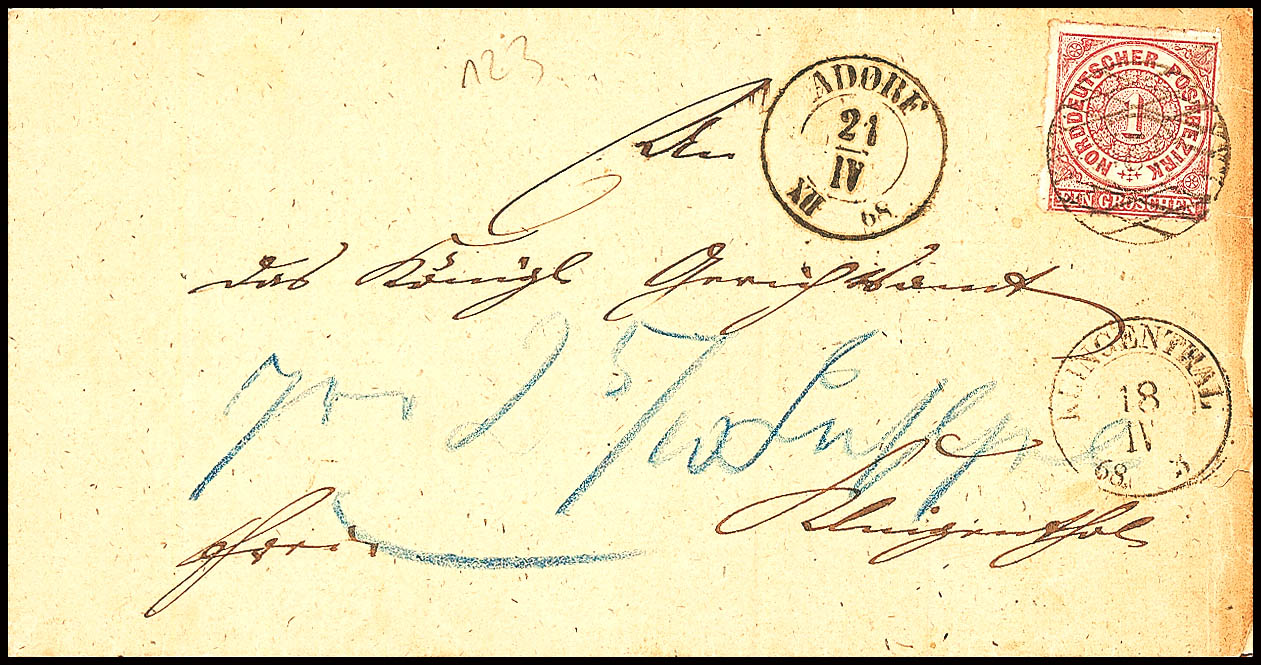 123
ADORF
21
IV
XII 68
NORDDEUTSCHER POSTBEZIRK
1
EIN GROSCHEN
An
das Königl Gerichtsamt
KLINGENTHAL
18
IV
68
frei
Klingenthal